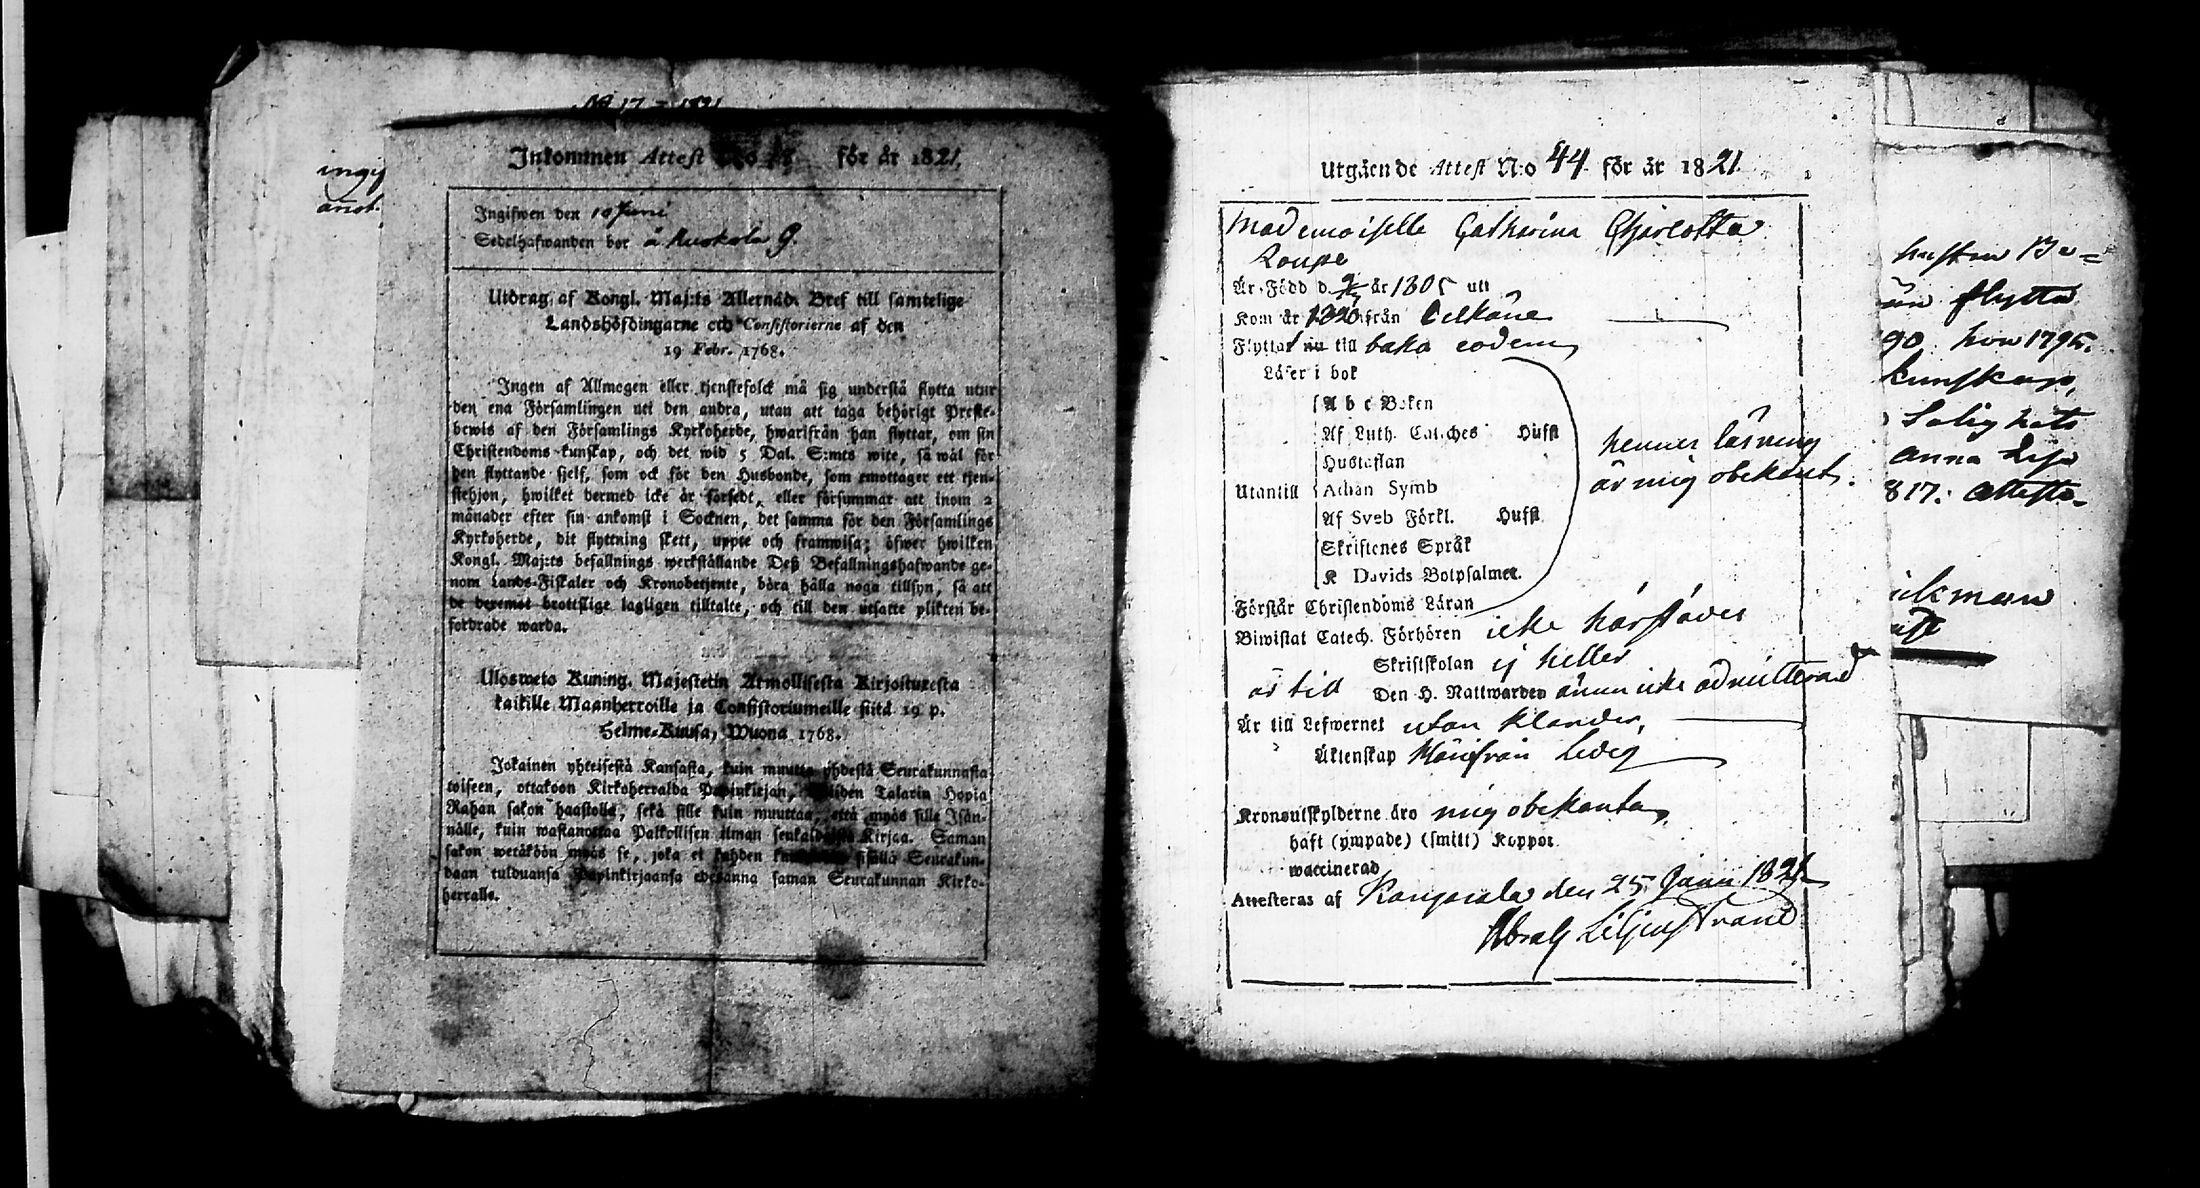 No 17 = 1821
ingif
anot.
Inkommen Attest N:o för år 1821.
Ingifwen den 10 Juni
Sedelhafwanden bor å Kuokola G.
Utdrag af Kongl. Maj:ts Allernåd. Bref till samtelige
Landshöfdingarne och Consistorierne af den
19 Febr. 1768.
Ingen af Allmogen eller tjenstefolck må sig understå flytta utur
den ena Församlingen uti den andra, utan att taga behörigt Preste-
bewis af den Församlings Kyrkoherde, hwarifrån han flyttar, om sin
Christendoms kunskap, och det wid 5 Dal. S:mts wite, så wäl för
den flyttande sjelf, som ock för den Husbonde, som emottager ett tjen-
stehjon, hwilket dermed icke är försedt, eller försummar att inom 2
månader efter sin ankomst i Socknen, det samma för den Församlings
Kyrkoherde, dit flyttning skett, uppte och framwisa; öfwer hwilken
Kongl. Maj:ts befallnings werkställande Deß Befallningshafwande ge-
nom Lands-Fiskaler och Kronobetjente, böra hålla noga tillsyn, så att
de deremot brottslige lagligen tilltalte, och till den utsatte plikten be-
fordrade warda.
Ulosweto Kuning. Majestetin Armollisesta Kirjoituxesta
kaikille Maanherroille ja Consistoriumeille siitä 19 p.
Helme-Kuusa, Wuona 1768.
Jokainen yhteisestä Kansasta, kuin muutta yhdestä Seurakunnasta
toiseen, ottakoon Kirkoherralda Papinkirjan, wiiden Talarin Hopia
Rahan sakon haastolla, sekä sille kuin muuttaa, että myös sille Isän-
nälle, kuin wastanottaa Palkollisen ilman senkaldaista Kirjaa. Saman
sakon wetäköön myös se, joka ei kahden sisällä Seurakun-
daan tulduansa Papinkirjaansa edesanna saman Seurakunnan Kirko-
herralle.
Utgåen de Attest N:o 44 för år 1821.
Mademoiselle Catharina Charlotta
Loupe
Är Född d. år 1805 utt
Kom år 1820 ifrån Celkäne
Flyttar nu till baka eodem
Läser i bok
A b c Boken
Af Luth. Cateches Hufst
Hustaflan
Utantill Athan Symb
Af Sveb Förkl. Hufst
Skriftenes Språk
K Davids Botpsalmer.
hennes läsning
är mig obekant.
Förstår Christendoms Läran
Biwistat Catech. Förhören icke härstädes
Skriftskolan ej heller
är till Den H. Nattwarden ännu icke admitterad
Är till Lefwernet utan klander,
Äktenskap härifrån Ledig
Kronoutskylderne äro mig obekanta,
haft (ympade) (smitt) Koppor
waccinerad
Attesteras af Kangasala den 25 Junii 1821
Abrah Liljenstrand
hustru Be=
flytta
90 hon 1795.
kunskap,
Salighets
Anna Lisa
817. atteste-
ickman